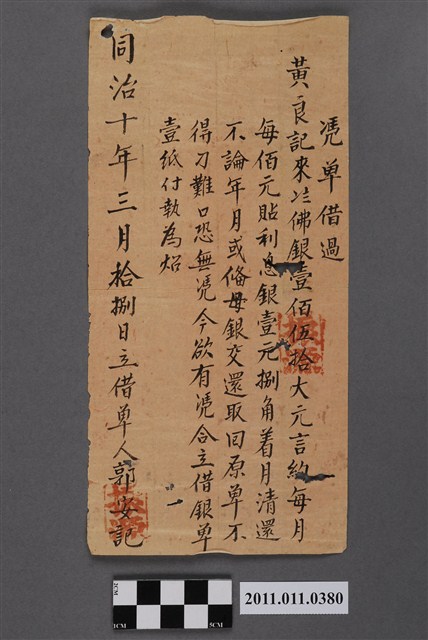 憑單借過
黃良記來讫佛銀壹佰伍拾大元言約每月
每佰元貼利息銀壹元捌角着月清還
不論年月或俻母銀交還取回原单不
得刁難口恐無凭今欲有凭合立借銀单
壹紙付執為炤
同治十年三月拾捌日立借单人郭安記
2CM
1CM
5CM
2011.011.0380